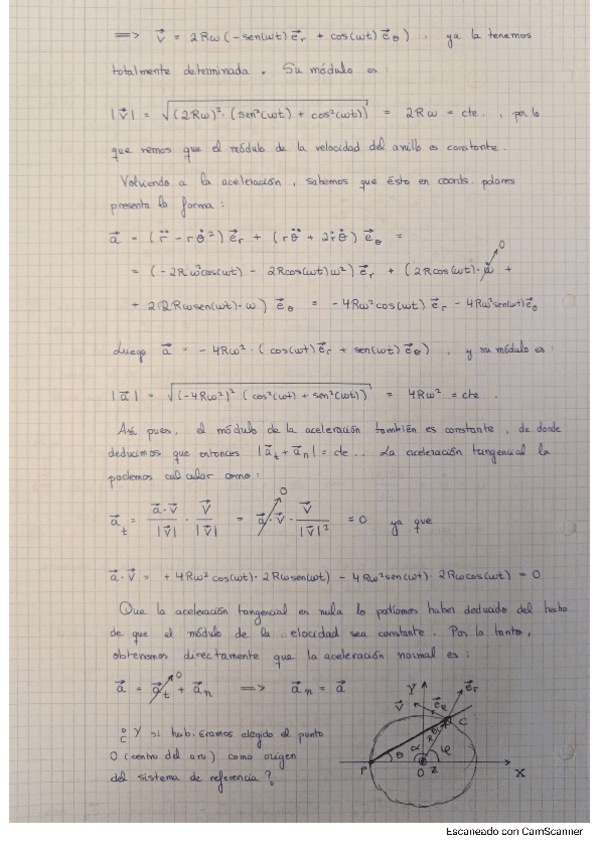 ⟹ v⃗ = 2Rω (-sen(ωt) e⃗r + cos(ωt) e⃗θ), ya la tenemos
totalmente determinada. Su módulo es:
|v⃗| = √((2Rω)²·(sen²(ωt) + cos²(ωt))) = 2Rω = cte., por lo
que vemos que el módulo de la velocidad del anillo es constante.
Volviendo a la aceleración, sabemos que ésta en coords. polares
presenta la forma:
a⃗ = (r̈ - rθ̇²) e⃗r + (rθ̈ + 2ṙθ̇) e⃗θ =
= (-2Rω²cos(ωt) - 2Rcos(ωt)ω²) e⃗r + (2Rcos(ωt)· 0 +
+ 2(-2Rωsen(ωt)·ω) e⃗θ = -4Rω²cos(ωt) e⃗r - 4Rω²sen(ωt) e⃗θ
Luego a⃗ = -4Rω²·(cos(ωt) e⃗r + sen(ωt) e⃗θ), y su módulo es:
|a⃗| = √((-4Rω²)² (cos²(ωt) + sen²(ωt))) = 4Rω² = cte.
Así pues, el módulo de la aceleración también es constante, de donde
deducimos que entonces |a⃗t + a⃗n| = cte.. La aceleración tangencial la
podemos calcular como:
0
a⃗t = a⃗·v⃗/|v⃗| · v⃗/|v⃗| = a⃗·v⃗ · v⃗/|v⃗|² = 0 ya que
a⃗·v⃗ = +4Rω²cos(ωt)·2Rωsen(ωt) - 4Rω²sen(ωt)·2Rωcos(ωt) = 0
Que la aceleración tangencial es nula lo podíamos haber deducido del hecho
de que el módulo de la elocidad sea constante. Por lo tanto,
obtenemos directamente que la aceleración normal es:
a⃗ = a⃗t 0 + a⃗n ⟹ a⃗n = a⃗
¿Y si hubiéramos elegido el punto
O (centro del aro) como origen
del sistema de referencia?
Y e⃗r
v⃗ e⃗θ
C
R
α φ
P θ O X
Escaneado con CamScanner